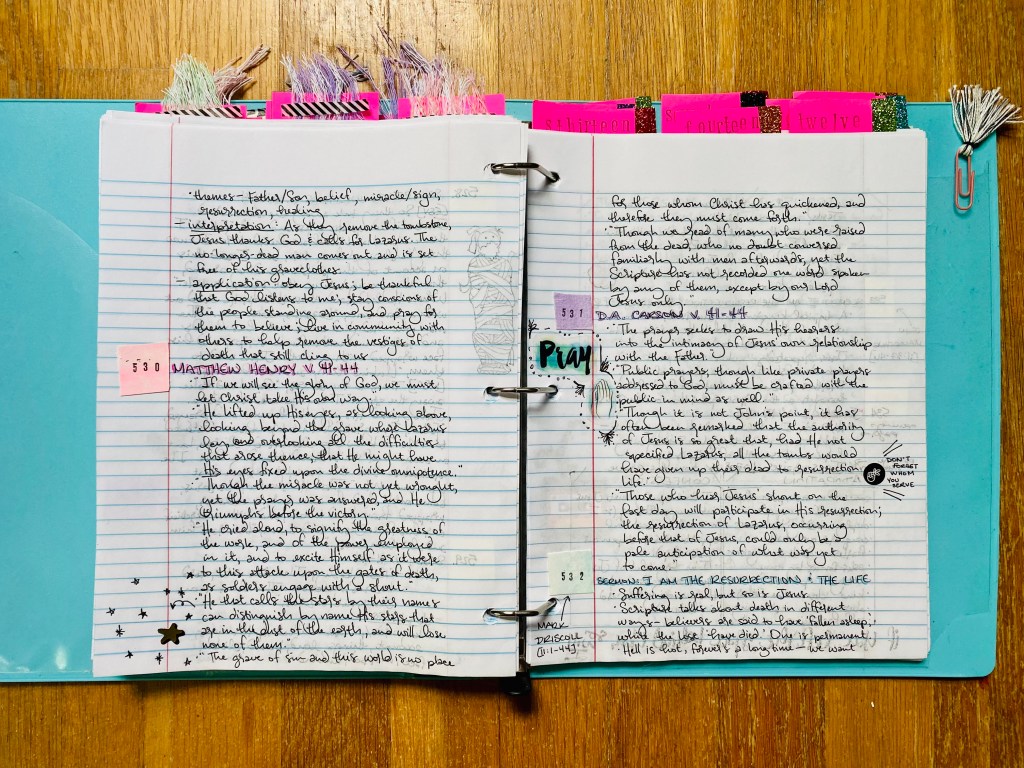 sthirteen
fourteen
twelve
• themes - Father/Son, belief, miracle/sign,
resurrection, healing
- interpretation: As they remove the tombstone,
Jesus thanks God & calls for Lazarus. The
no-longer-dead man comes out and is set
free of his graveclothes.
- application: obey Jesus; be thankful
that God listens to me; stay conscious of
the people standing around, and pray for
them to believe; live in community with
others to help remove the vestiges of
death that still cling to us
530
MATTHEW HENRY V. 41-44
• "If we will see the glory of God, we must
let Christ take His own way."
• "He lifted up His eyes, as looking above,
looking beyond the grave where Lazarus
lay, and overlooking all the difficulties
that arose thence, that He might have
His eyes fixed upon the divine omnipotence."
• "Though the miracle was not yet wrought,
yet the prayer was answered, and He
triumphs before the victory."
• "He cried aloud, to signify the greatness of
the work, and of the power employed
in it, and to excite Himself as it were
to this attack upon the gates of death,
as soldiers engage with a shout."
• "He that calls the stars by their names
can distinguish by name His stars that
are in the dust of the earth, and will lose
none of them."
• "The grave of sin and this world is no place
for those whom Christ has quickened, and
therefore they must come forth."
• "Though we read of many who were raised
from the dead, who no doubt conversed
familiarly with men afterwards, yet the
Scripture has not recorded one word spoken
by any of them, except by our Lord
Jesus only."
531
D.A. CARSON V. 41-44
Pray
• "The prayer seeks to draw His hearers
into the intimacy of Jesus' own relationship
with the Father."
• "Public prayers, though like private prayers
addressed to God, must be crafted with the
public in mind as well."
• "Though it is not John's point, it has
often been remarked that the authority
of Jesus is so great that, had He not
specified Lazarus, all the tombs would
have given up their dead to resurrection
life."
DON'T
FORGET
WHOM
YOU
SERVE
• "Those who hear Jesus' shout on the
last day will participate in His resurrection;
the resurrection of Lazarus, occurring
before that of Jesus, could only be a
pale anticipation of what was yet
to come."
532
SERMON: I AM THE RESURRECTION & THE LIFE
MARK
DRISCOLL
(11:1-44)
• Suffering is real, but so is Jesus
• Scripture talks about death in different
ways - believers are said to have 'fallen asleep;'
while the lost 'have died.' One is permanent.
• Hell is hot, forever's a long time - we want